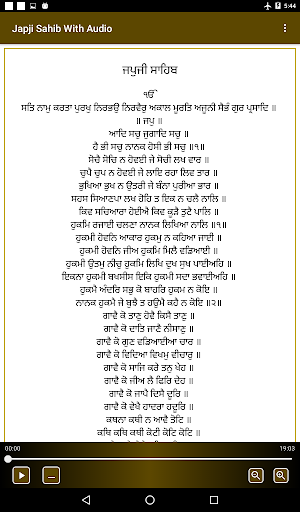 5:44
Japji Sahib With Audio
ਜਪੁਜੀ ਸਾਹਿਬ
ੴ
ਸਤਿ ਨਾਮੁ ਕਰਤਾ ਪੁਰਖੁ ਨਿਰਭਉ ਨਿਰਵੈਰੁ ਅਕਾਲ ਮੂਰਤਿ ਅਜੂਨੀ ਸੈਭੰ ਗੁਰ ਪ੍ਰਸਾਦਿ ॥
॥ ਜਪੁ ॥
ਆਦਿ ਸਚੁ ਜੁਗਾਦਿ ਸਚੁ ॥
ਹੈ ਭੀ ਸਚੁ ਨਾਨਕ ਹੋਸੀ ਭੀ ਸਚੁ ॥੧॥
ਸੋਚੈ ਸੋਚਿ ਨ ਹੋਵਈ ਜੇ ਸੋਚੀ ਲਖ ਵਾਰ ॥
ਚੁਪੈ ਚੁਪ ਨ ਹੋਵਈ ਜੇ ਲਾਇ ਰਹਾ ਲਿਵ ਤਾਰ ॥
ਭੁਖਿਆ ਭੁਖ ਨ ਉਤਰੀ ਜੇ ਬੰਨਾ ਪੁਰੀਆ ਭਾਰ ॥
ਸਹਸ ਸਿਆਣਪਾ ਲਖ ਹੋਹਿ ਤ ਇਕ ਨ ਚਲੈ ਨਾਲਿ ॥
ਕਿਵ ਸਚਿਆਰਾ ਹੋਈਐ ਕਿਵ ਕੂੜੈ ਤੁਟੈ ਪਾਲਿ ॥
ਹੁਕਮਿ ਰਜਾਈ ਚਲਣਾ ਨਾਨਕ ਲਿਖਿਆ ਨਾਲਿ ॥੧॥
ਹੁਕਮੀ ਹੋਵਨਿ ਆਕਾਰ ਹੁਕਮੁ ਨ ਕਹਿਆ ਜਾਈ ॥
ਹੁਕਮੀ ਹੋਵਨਿ ਜੀਅ ਹੁਕਮਿ ਮਿਲੈ ਵਡਿਆਈ ॥
ਹੁਕਮੀ ਉਤਮੁ ਨੀਚੁ ਹੁਕਮਿ ਲਿਖਿ ਦੁਖ ਸੁਖ ਪਾਈਅਹਿ ॥
ਇਕਨਾ ਹੁਕਮੀ ਬਖਸੀਸ ਇਕਿ ਹੁਕਮੀ ਸਦਾ ਭਵਾਈਅਹਿ ॥
ਹੁਕਮੈ ਅੰਦਰਿ ਸਭੁ ਕੋ ਬਾਹਰਿ ਹੁਕਮ ਨ ਕੋਇ ॥
ਨਾਨਕ ਹੁਕਮੈ ਜੇ ਬੁਝੈ ਤ ਹਉਮੈ ਕਹੈ ਨ ਕੋਇ ॥੨॥
ਗਾਵੈ ਕੋ ਤਾਣੁ ਹੋਵੈ ਕਿਸੈ ਤਾਣੁ ॥
ਗਾਵੈ ਕੋ ਦਾਤਿ ਜਾਣੈ ਨੀਸਾਣੁ ॥
ਗਾਵੈ ਕੋ ਗੁਣ ਵਡਿਆਈਆ ਚਾਰ ॥
ਗਾਵੈ ਕੋ ਵਿਦਿਆ ਵਿਖਮੁ ਵੀਚਾਰੁ ॥
ਗਾਵੈ ਕੋ ਸਾਜਿ ਕਰੇ ਤਨੁ ਖੇਹ ॥
ਗਾਵੈ ਕੋ ਜੀਅ ਲੈ ਫਿਰਿ ਦੇਹ ॥
ਗਾਵੈ ਕੋ ਜਾਪੈ ਦਿਸੈ ਦੂਰਿ ॥
ਗਾਵੈ ਕੋ ਵੇਖੈ ਹਾਦਰਾ ਹਦੂਰਿ ॥
ਕਥਨਾ ਕਥੀ ਨ ਆਵੈ ਤੋਟਿ ॥
ਕਥਿ ਕਥਿ ਕਥੀ ਕੋਟੀ ਕੋਟਿ ਕੋਟਿ ॥
00:00 19:03